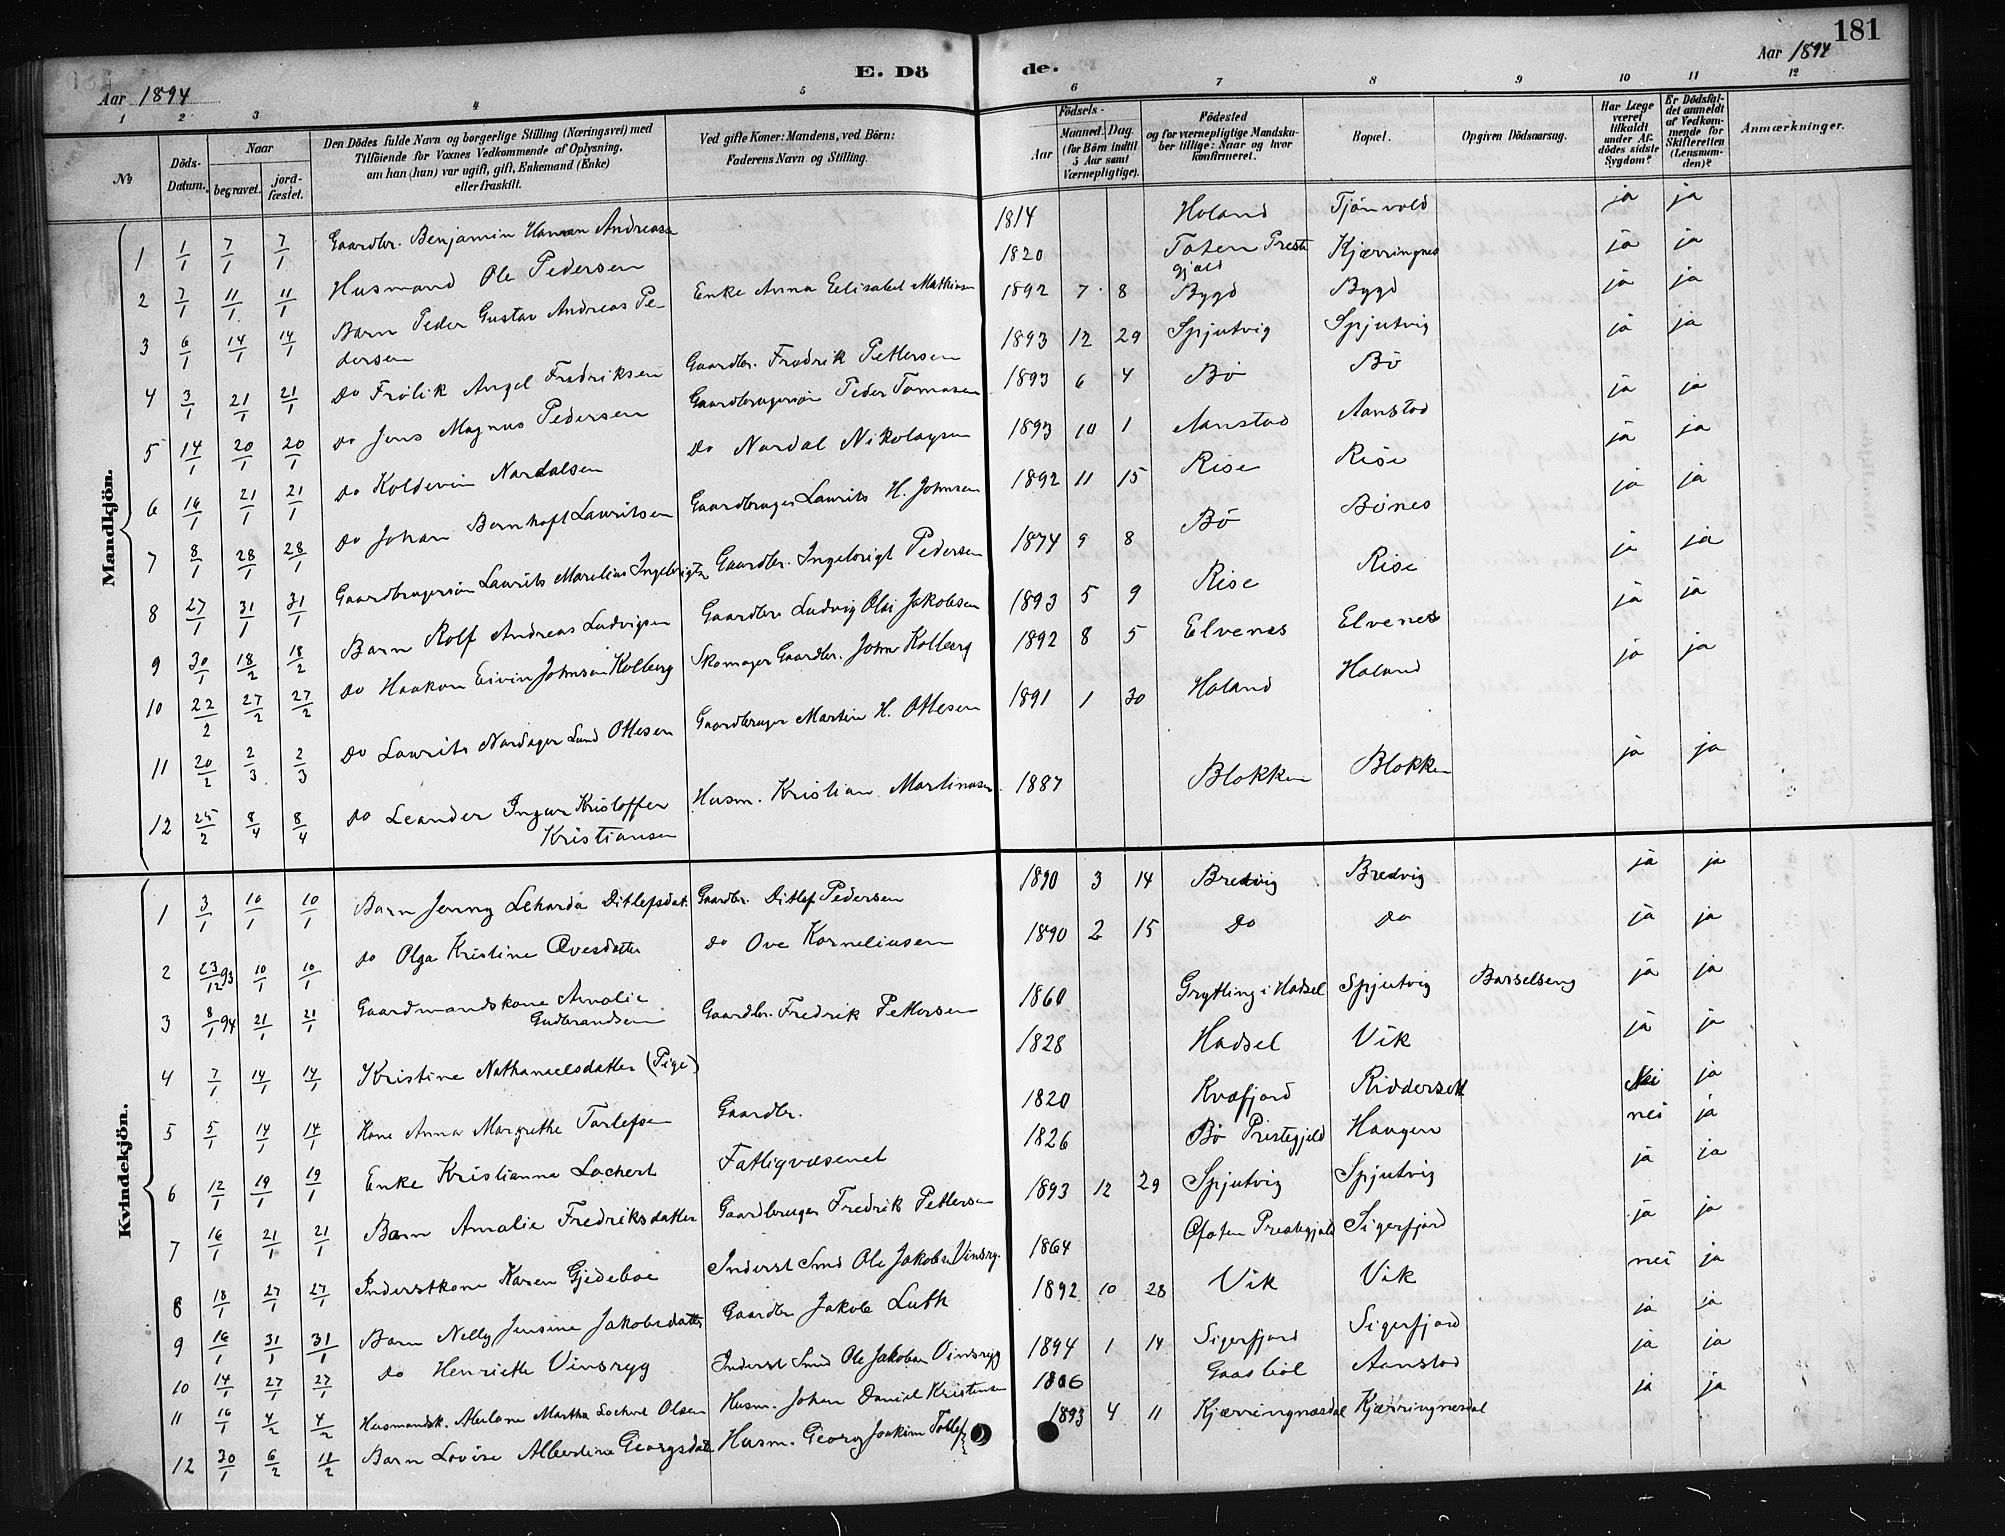 181
E. Døde.
Aar 1894
Aar 1894
1 2 3 4 5 6 7 8 9 10 11 12
№
Døds-Datum.
Naar begravet. jordfæstet.
Den Dødes fulde Navn og borgerlige Stilling (Næringsvei) med Tilføiende for Voxnes Vedkommende af Oplysning, om han (hun) var ugift, gift, Enkemand (Enke) eller fraskilt.
Ved gifte Koner: Mandens, ved Børn: Faderens Navn og Stilling.
Fødsels-
Aar
Maaned. Dag. (for Børn indtil 5 Aar samt Værnepligtige).
Fødested og for værnepligtige Mandskaber tillige: Naar og hvor konfirmeret.
Bopæl.
Opgiven Dødsaarsag.
Har Læge været tilkaldt under Afdødes sidste Sygdom?
Er Dødsfaldet anmeldt af Vedkommende for Skifteretten (Lensmanden)?
Anmærkninger.
Mandkjøn.
1 1/1 7/1 7/1 Gaardbr. Benjamin Hansen Andreasen 1814 Holand Tjønvold ja ja
2 7/1 11/1 11/1 Husmand Ole Pedersen 1820 Toten Prestegjæld Kjærringnes ja ja
3 6/1 14/1 14/1 Barn Peder Gustav Andreas Pedersen Enke Anna Elisabet Mathiasen 1892 7 8 Bygd Bygd ja ja
4 3/1 21/1 21/1 Do Frølik Angel Fredriksen Gaardbr. Fredrik Pettersen 1893 12 29 Spjutvig Spjutvig ja ja
5 14/1 20/1 20/1 Do Jens Magnus Pedersen Gaardbrugersøn Peder Tomasen 1893 6 4 Bø Bø ja ja
6 16/1 21/1 21/1 Do Koldevin Nardalsen Do Nardal Nikolaysen 1893 10 1 Aanstad Aanstad ja ja
7 8/1 28/1 28/1 Do Johan Bernhoft Lauritsen Gaardbruger Laurits H. Johnsen 1892 11 15 Rise Rise ja ja
8 27/1 31/1 31/1 Gaardbrugersøn Laurits Marelius Ingebrigtsen Gaardbr. Ingebrigt Pedersen 1874 9 8 Bø Bønes ja ja
9 30/1 18/2 18/2 Barn Rolf Andreas Ludvigsen Gaardbr. Ludvig Olai Jakobsen 1893 5 9 Rise Rise ja ja
10 22/2 27/2 27/2 Do Haakon Eivin Johnsen Kolberg Skomager Gaardbr. John Kolberg 1892 8 5 Elvenes Elvenes ja ja
11 20/2 2/3 2/3 Do Laurits Nordager Lund Ottesen Gaardbruger Martin H. Ottesen 1891 1 30 Holand Holand
12 25/2 8/4 8/4 Do Leander Ingvar Kristoffer Kristiansen Husm. Kristian Martinusen 1887 Blokken Blokken ja ja
Kvindekjøn.
1 3/1 10/1 10/1 Barn Jenny Leharda Ditlefsdat. Gaardbr. Ditlef Pedersen 1890 3 14 Bredvig Bredvig ja ja
2 23/12 93 10/1 10/1 Do Olga Kristine Ovesdatter Do Ove Korneliusen 1890 2 15 Do Do ja ja
3 8/1 94 21/1 21/1 Gaardmandskone Amalie Gudbrandsen Gaardbr. Fredrik Pettersen 1860 Grytting i Hadsel Spjutvig Barselseng ja ja
4 7/1 14/1 14/1 Kristine Nathanaelsdatter (Pige) 1828 Hadsel Vik ja ja
5 5/1 14/1 14/1 Kone Anna Margrethe Torlefsen Gaardbr. 1820 Kvæfjord Riddersett Nei ja
6 12/1 19/1 19/1 Enke Kristianna Lochert Fattigvæsenet 1826 Bø Prestegjeld Haugen nei ja
7 16/1 21/1 21/1 Barn Amalie Fredriksdatter Gaardbruger Fredrik Pettersen 1893 12 29 Spjutvig Spjutvig ja ja
8 18/1 27/1 27/1 Inderstkone Karen Gjedeboe Inderst Smed Ole Jakobsen Vinsryg. 1864 Ofoten Prestegjæld Sigerfjord ja ja
9 16/1 31/1 31/1 Barn Nelly Jensine Jakobsdatter Gaardbr Jakob Luth 1892 10 28 Vik Vik nei ja
10 14/1 27/1 27/1 Do Henriette Vinsryg Inderst Smed Ole Jakobsen Vinsryg 1894 1 14 Sigerfjord Sigerfjord ja ja
11 16/1 4/2 4/2 Husmandsk. Martha Lochert Olsen Husm. Johan Daniel Kristensen Gaasbøl Aanstad ja ja
12 30/1 6/2 11/2 Barn Lovise Albertine Georgsdat. Husm. Georg Joakim Tollefs. 1893 4 11 Kjærringnesdal Kjærringnesdal ja ja